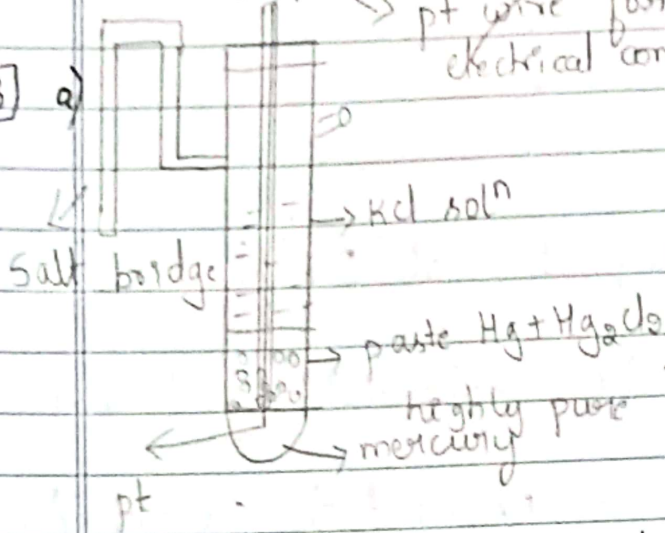 pt wire
electrical
a)
KCl solⁿ
Salt bridge
paste Hg + Hg₂Cl₂
heghly pure
mercury
pt